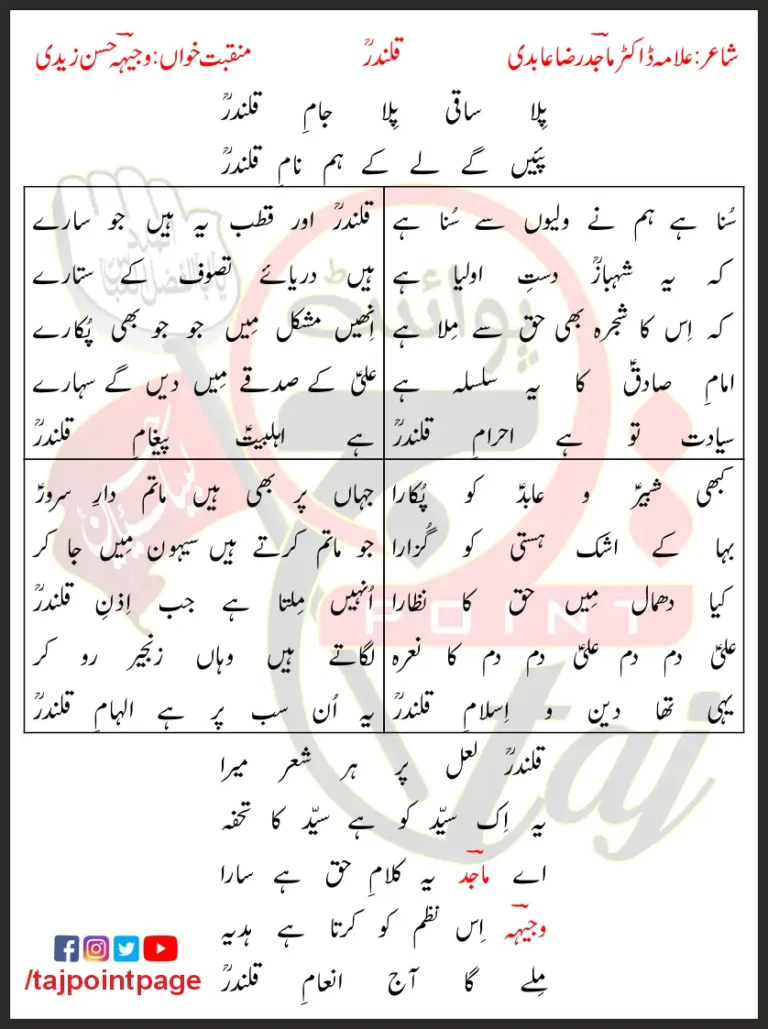 شاعر: علامہ ڈاکٹر ماجد رضا عابدی قلندرؒ منقبت خواں: وجیہہ حسن زیدی
پِلا ساقی پِلا جامِ قلندرؒ
پئیں گے لے کے ہم نامِ قلندرؒ
سُنا ہے ہم نے ولیوں سے سُنا ہے
کہ یہ شہبازؒ دستِ اولیا ہے
کہ اِس کا شجرہ بھی حق سے مِلا ہے
امامِ صادقؑ کا یہ سلسلہ ہے
سیادت تو ہے احرامِ قلندرؒ
قلندرؒ اور قطب یہ ہیں جو سارے
ہیں دریائے تصوف کے ستارے
اِنھیں مشکل مِیں جو جو بھی پُکارے
علیؑ کے صدقے مِیں دیں گے سہارے
ہے اہلبیتؑ پیغامِ قلندرؒ
کبھی شبیرؑ و عابدؑ کو پُکارا
بہا کے اشک ہستی کو گُزارا
کیا دھمال مِیں حق کا نظارا
علیؑ دم دم علیؑ دم دم کا نعرہ
یہی تھا دین و اِسلامِ قلندرؒ
جہاں پر بھی ہیں ماتم دارِ سرورؑ
جو ماتم کرتے ہیں سیہون مِیں جا کر
اُنہیں مِلتا ہے جب اِذنِ قلندرؒ
لگاتے ہیں وہاں زنجیر رو کر
یہ اُن سب پر ہے الہامِ قلندرؒ
قلندرؒ لعل پر ہر شعر میرا
یہ اِک سیّد کو ہے سیّد کا تحفہ
اے ماجد یہ کلامِ حق ہے سارا
وجیہہ اِس نظم کو کرتا ہے ہدیہ
مِلے گا آج انعامِ قلندرؒ
/tajpointpage
پوائنٹ
POINT
taj